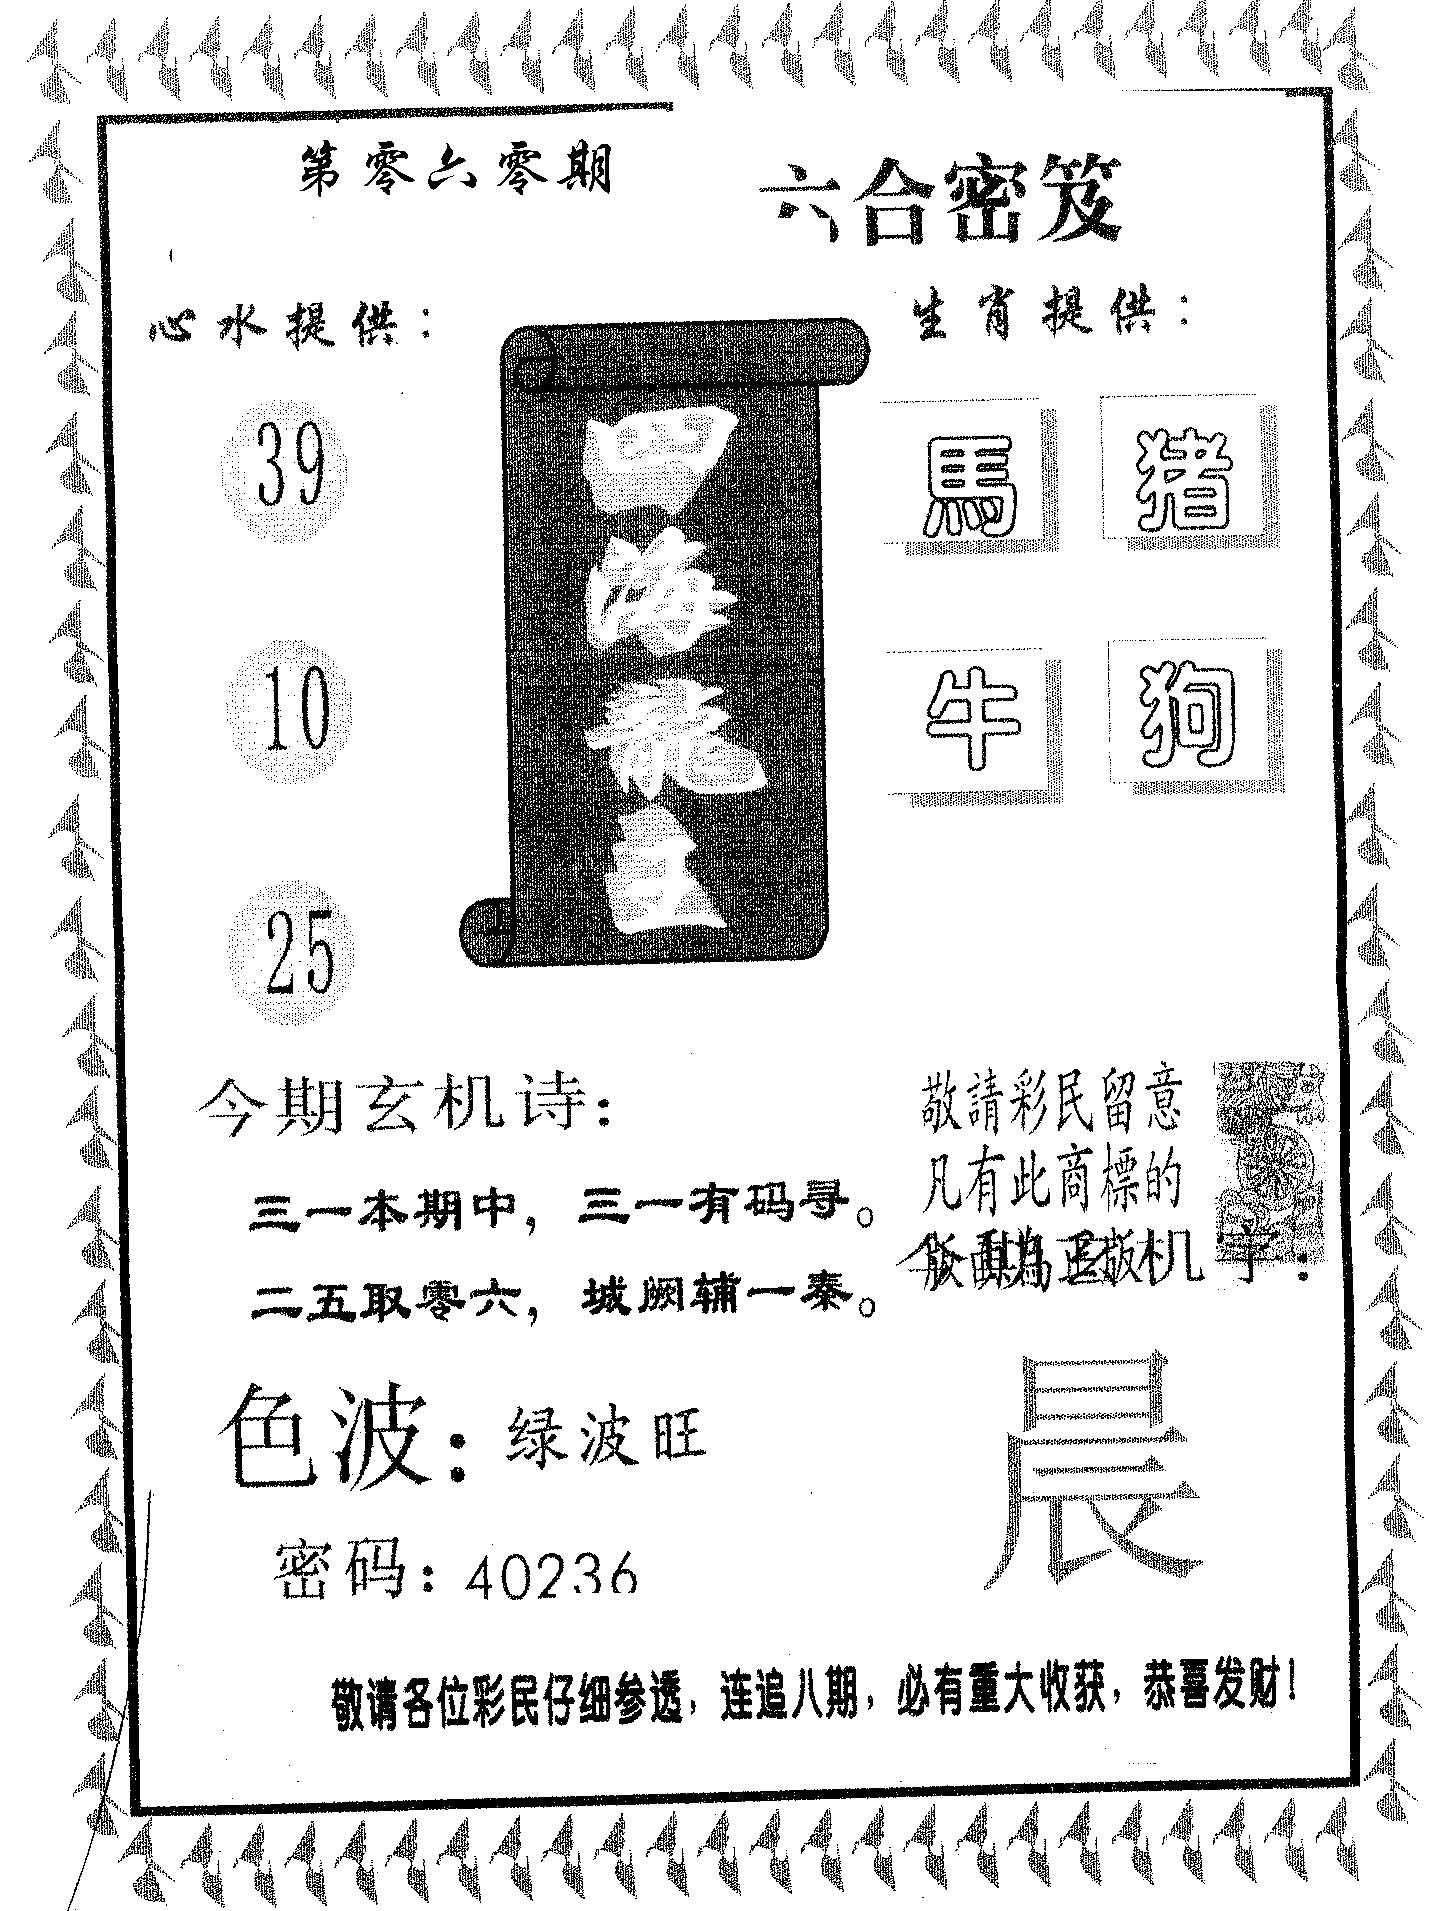 第零六零期
六合密笈
心水提供：
生肖提供：
39
10
25
四海龍王
馬 猪
牛 狗
今期玄机诗：
三一本期中，三一有码寻。
二五取零六，城阙辅一秦。
敬請彩民留意
凡有此商標的
版面為正版
机字：
晨
色波：绿波旺
密码：40236
敬请各位彩民仔细参透，连追八期，必有重大收获，恭喜发财！